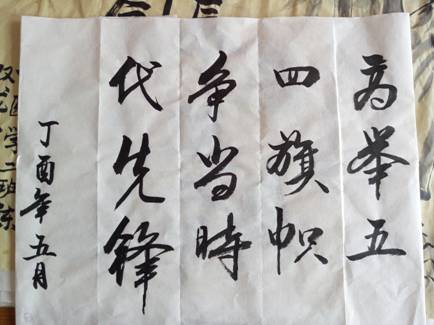 高举五
四旗帜
争当時
代先鋒
丁酉年五月